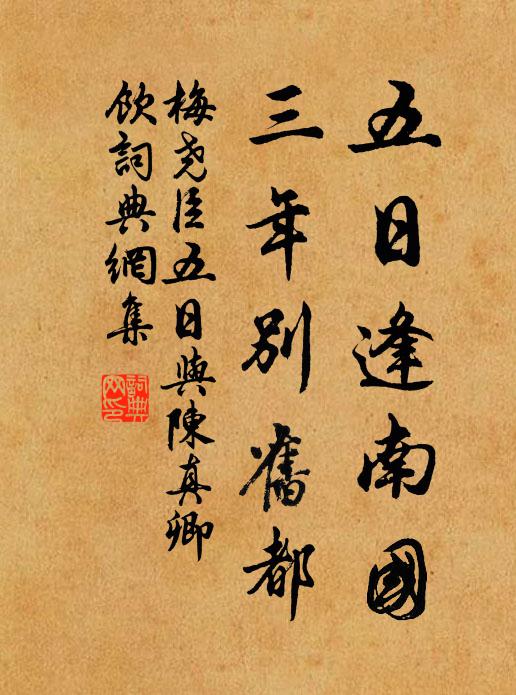 五日逢南國
三年別舊都
梅堯臣五日與陳真卿
飲詞典網集
詞典
网印